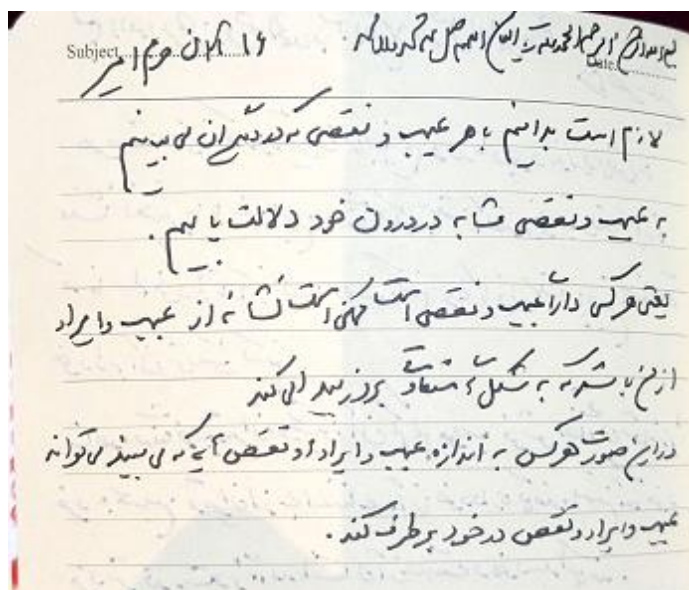 بسم الله الرحمن الرحیم الحمدلله رب العالمین اللهم صل علی محمد و آل محمد
Subject ۱۶ Date
لازم است بدانیم با هر عیب و نقصی که در دیگران می بینیم
به عیب و نقصی مشابه در درون خود دلالت یابیم.
یعنی هرکس دارای عیب و نقصی است ممکن است نشانه از عیب و ایراد
از من باشد که به شکل متفاوت بروز پیدا می کند
در این صورت هرکس به اندازه عیب و ایراد و نقصی که می بیند می تواند
عیب و ایراد و نقص در خود برطرف کند.